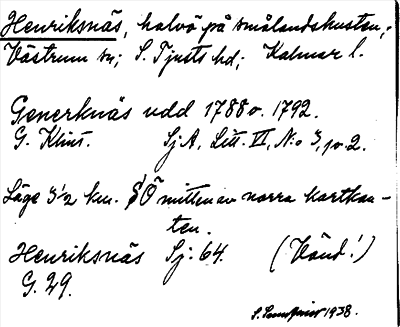 Henriksnäs, halvö på smålandskusten,
Västrum sn; S. Tjusts hd; Kalmar l.
Generknäs udd 1788 o. 1792.
G. Klint. Sj A, Litt. VI, N:o 3, p. 2.
Läge 3 1/2 km. S Ö mitten av norra kartkan-
ten.
Henriksnäs Sj: 64. (Vänd!)
G. 29.
1938.